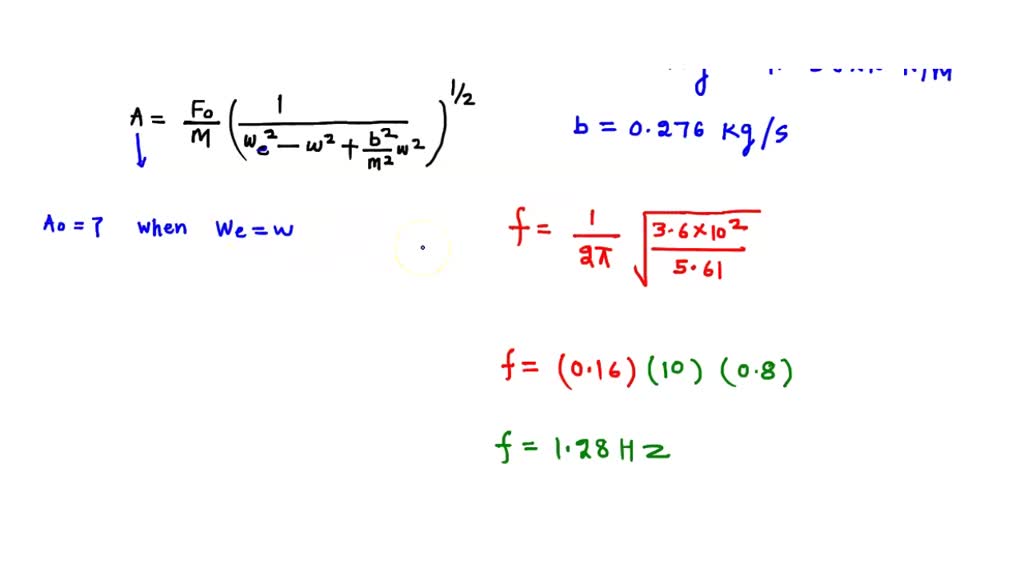 A = F₀/M (1/(We² − w² + b²/m² w²))^1/2
b = 0.276 kg/s
A₀ = ? when We = w
f = 1/2π √(3.6×10²/5.61)
f = (0.16) (10) (0.8)
f = 1.28 Hz